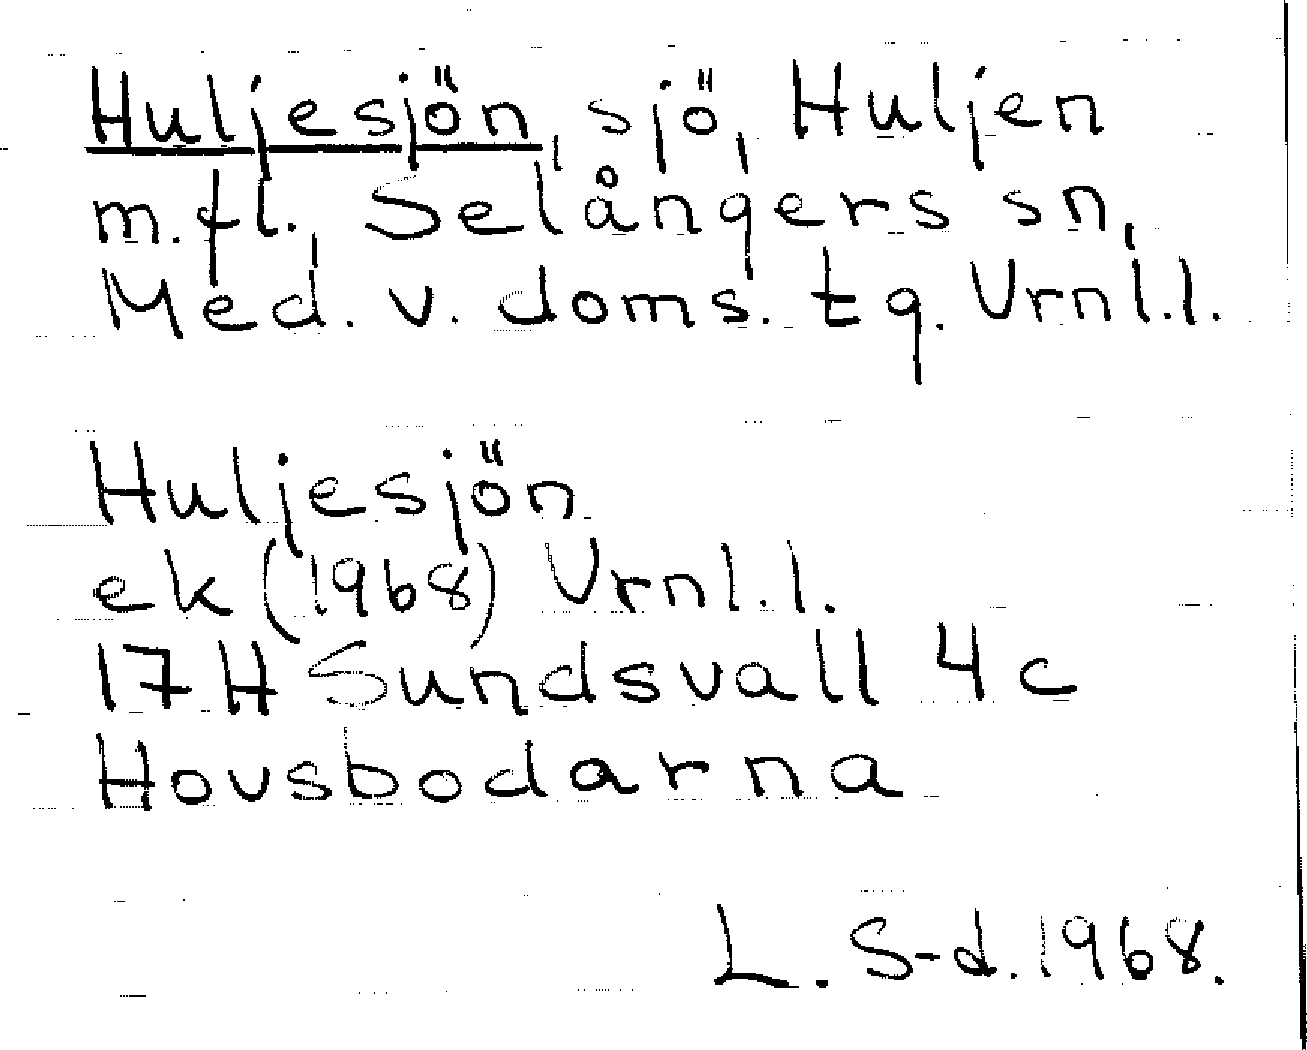 Huljesjön, sjö, Huljen
m.fl., Selångers sn,
Med. v. doms. tg. Vrnl.l.
Huljesjön
ek (1968) Vrnl.l.
17H Sundsvall 4c
Hovsbodarna
L. S-d. 1968.